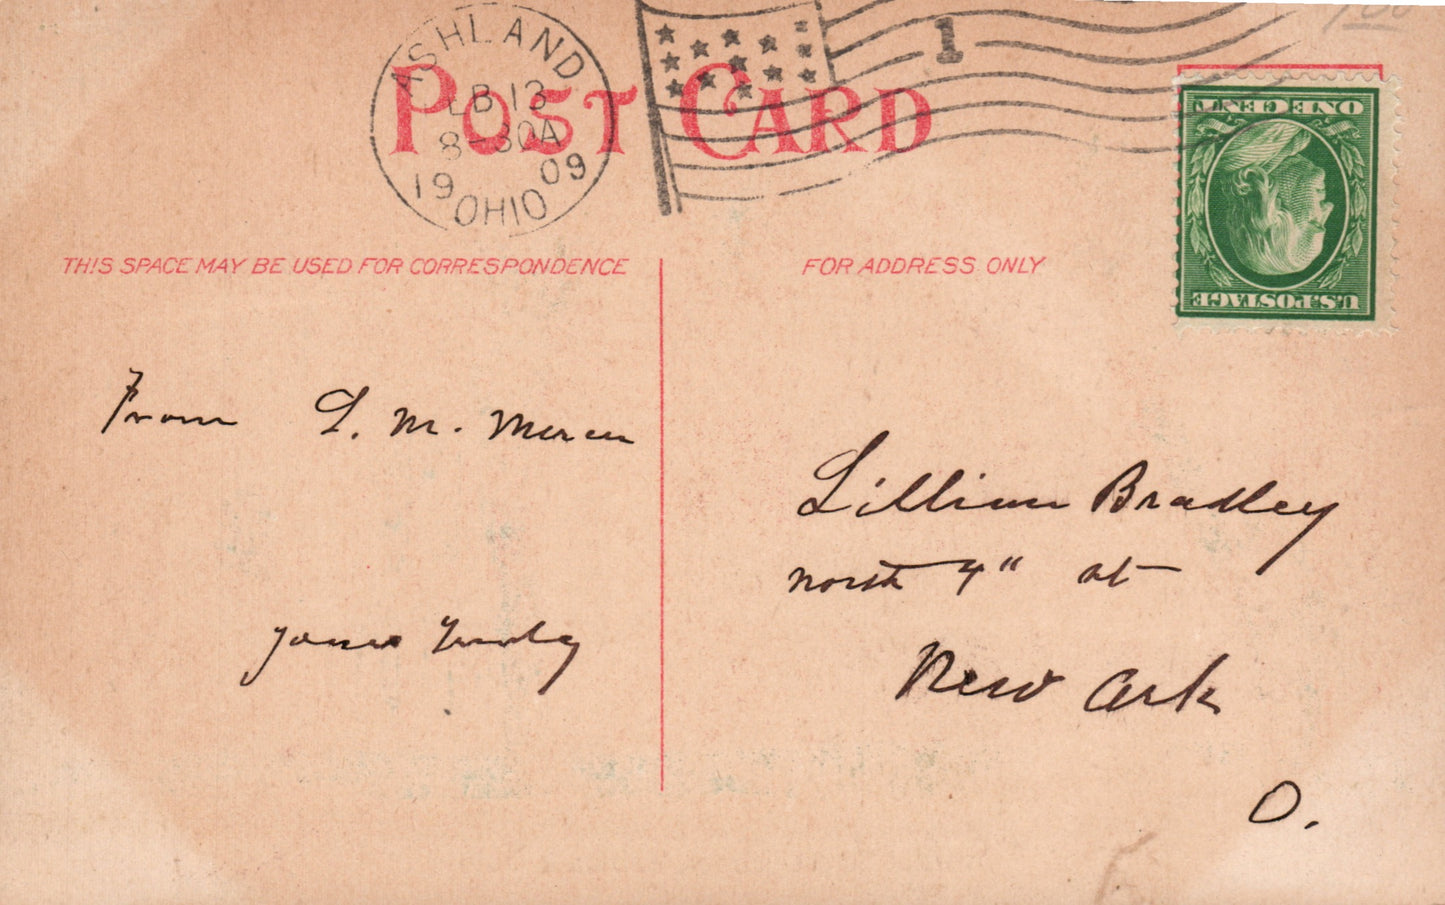 ASHLAND
FEB 13
8-30A
1909
OHIO
1
POST CARD
ONE CENT
U.S. POSTAGE
THIS SPACE MAY BE USED FOR CORRESPONDENCE
FOR ADDRESS ONLY
From L. M. Mercer
Lillian Bradley
north 4" st
yours truly
New Ark
O.